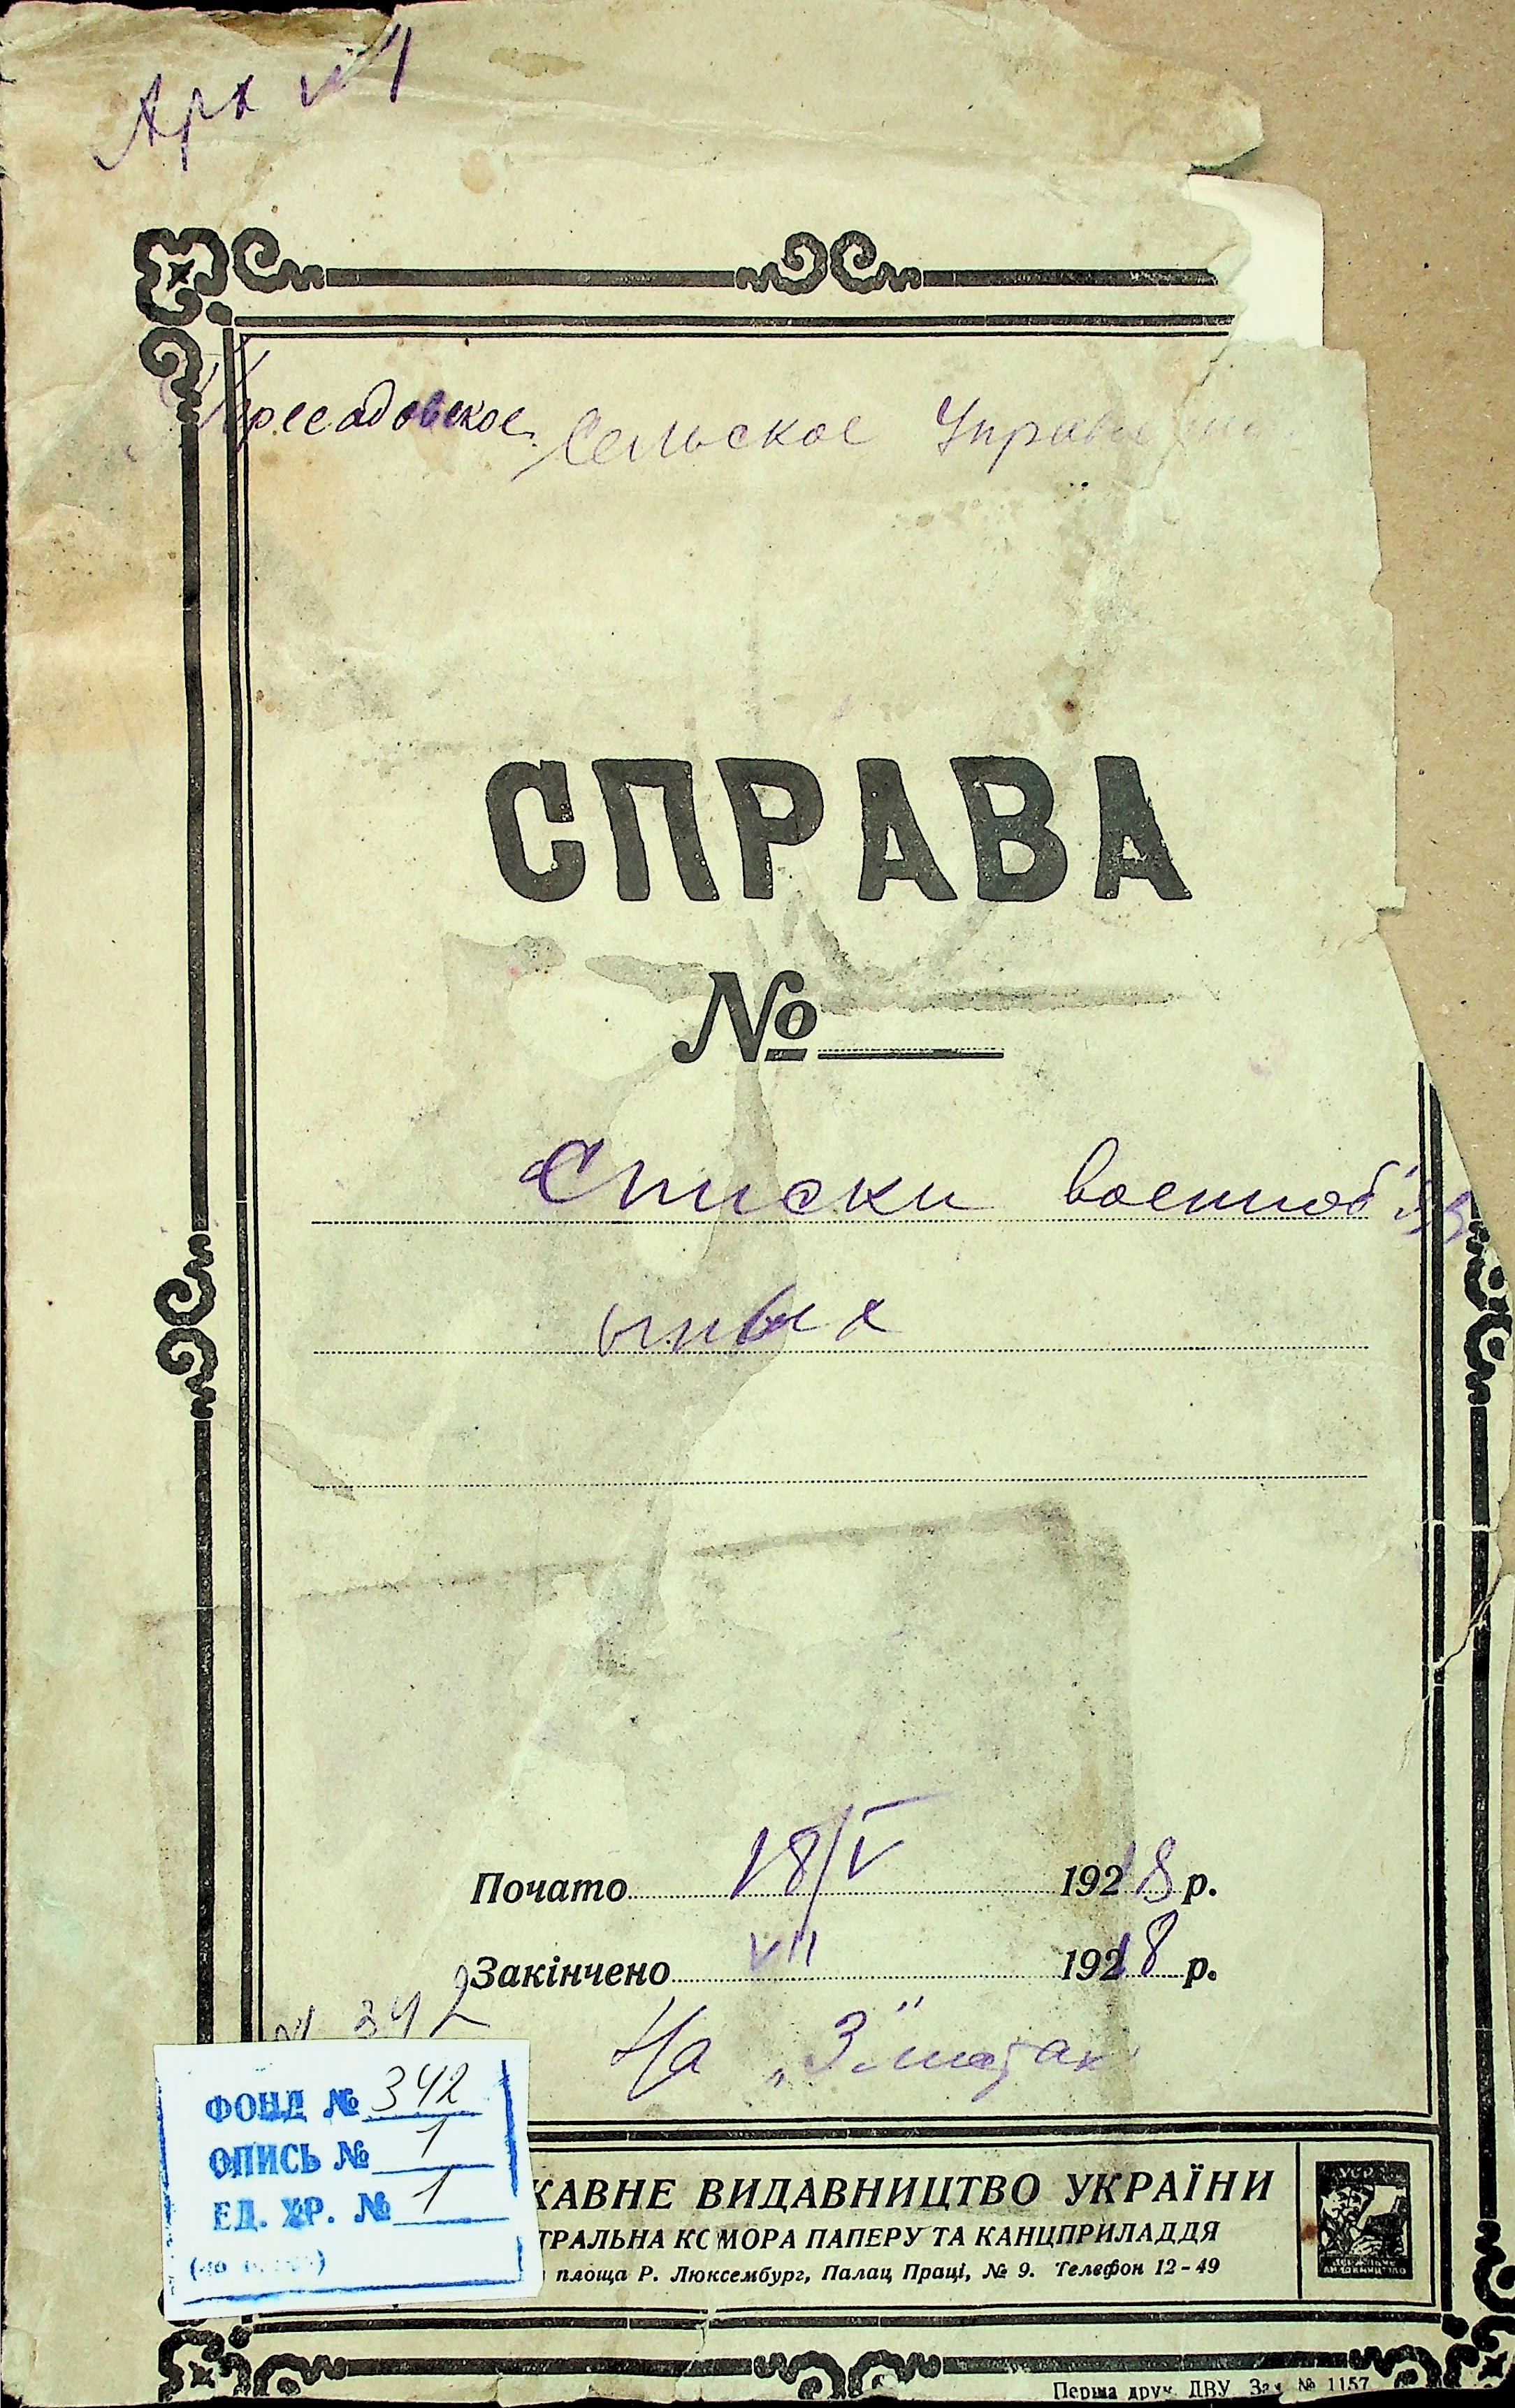 Арх №1
Пересадовское Сельское Управление
СПРАВА
№
Списки военнобяз
нных
Почато 18/V 1918 р.
Закінчено VII 1918 р.
№ 342
На
ФОНД № 342
ОПИСЬ № 1
ЕД. ХР. № 1
ЖАВНЕ ВИДАВНИЦТВО УКРАЇНИ
ТРАЛЬНА КОМОРА ПАПЕРУ ТА КАНЦПРИЛАДДЯ
площа Р. Люксембург, Палац Праці, № 9. Телефон 12-49
УСРР
Перша друк. ДВУ. Зам. № 1157